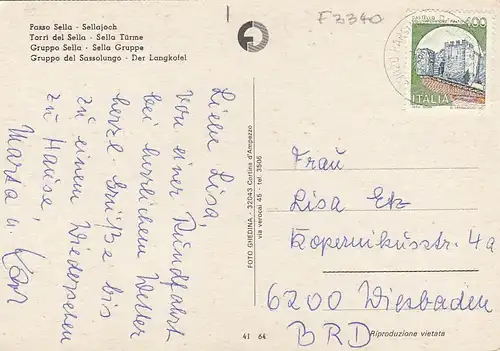 Passo Sella - Sellajoch
Torri del Sella - Sella Türme
Gruppo Sella - Sella Gruppe
Gruppo del Sassolungo - Der Langkofel
F2340
CASTELLO
400
ITALIA
Liebe Lisa,
von einer Rundfahrt
bei herrlichem Wetter
herzl. Grüße bis
zu einem Wiedersehen
zu Hause,
Marta u.
FOTO GHEDINA - 32043 Cortina d'Ampezzo
via verocai 45 - tel. 3506
Frau
Lisa Etz
Kopernikusstr. 4a
6200 Wiesbaden
BRD
41 64
Riproduzione vietata